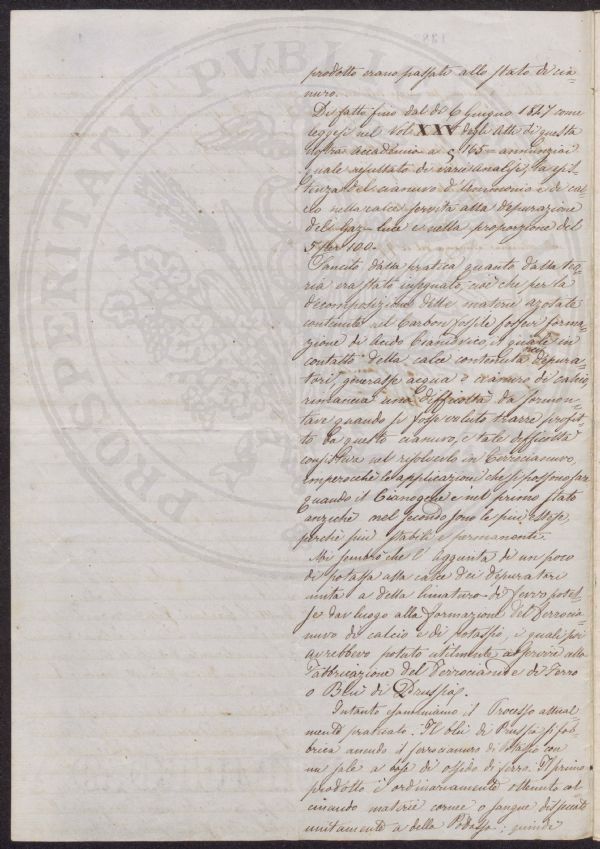 prodotto erano passate allo stato di cia=
nuro.
Di fatto fino dal dì 6 Giugno 1847 come
leggesi nel Vol. XXV degli Atti di questa
nostra Accademia a 165 annunziai
quale resultato di varie analisi, la esi=
stenza del cianuro d'Ammonio e di cal=
cio nella calce servita alla depurazione
del Gaz-luce e nella proporzione del
5 per 100.
Sancito dalla pratica quanto dalla teo=
ria era stato insegnato, cioè che per la
decomposizione delle materie azotate
contenute nel Carbon fossile fossevi forma=
zione di Acido Cianidrico, il quale in
contatto della calce contenuta nei depura=
tori, generasse acqua e cianuro di calcio,
rimaneva una difficoltà da sormon=
tare quando si fosse voluto trarre profit=
to da questo cianuro, e tale difficoltà
consisteva nel risolverlo in Ferrocianuro,
imperocchè le applicazioni che si possono far
quando il Cianogene è nel primo stato
anzichè nel secondo sono le più estese,
perchè più stabili e permanente.
Mi sembrò che l'aggiunta di un poco
di potassa alla calce dei depuratori
unita a della limatura di ferro potes=
se dar luogo alla formazione del Ferrocia=
nuro di calcio e di potassio, i quali poi
avrebbero potuto utilmente servire alla
Fabbricazione del Ferrocianuro di Ferro
o Bleu di Prussia.
Intanto esaminiamo il Processo attual=
mente praticato. Il blu di Prussia si fab=
brica avendo il ferrocianuro di potassio con
un sale a base di ossido di ferro. Il primo
prodotto è ordinariamente ottenuto cal=
cinando materie cornee o sangue disseccato
unitamente a della Potassa; quindi
PROSPERITATI PVBLICAE